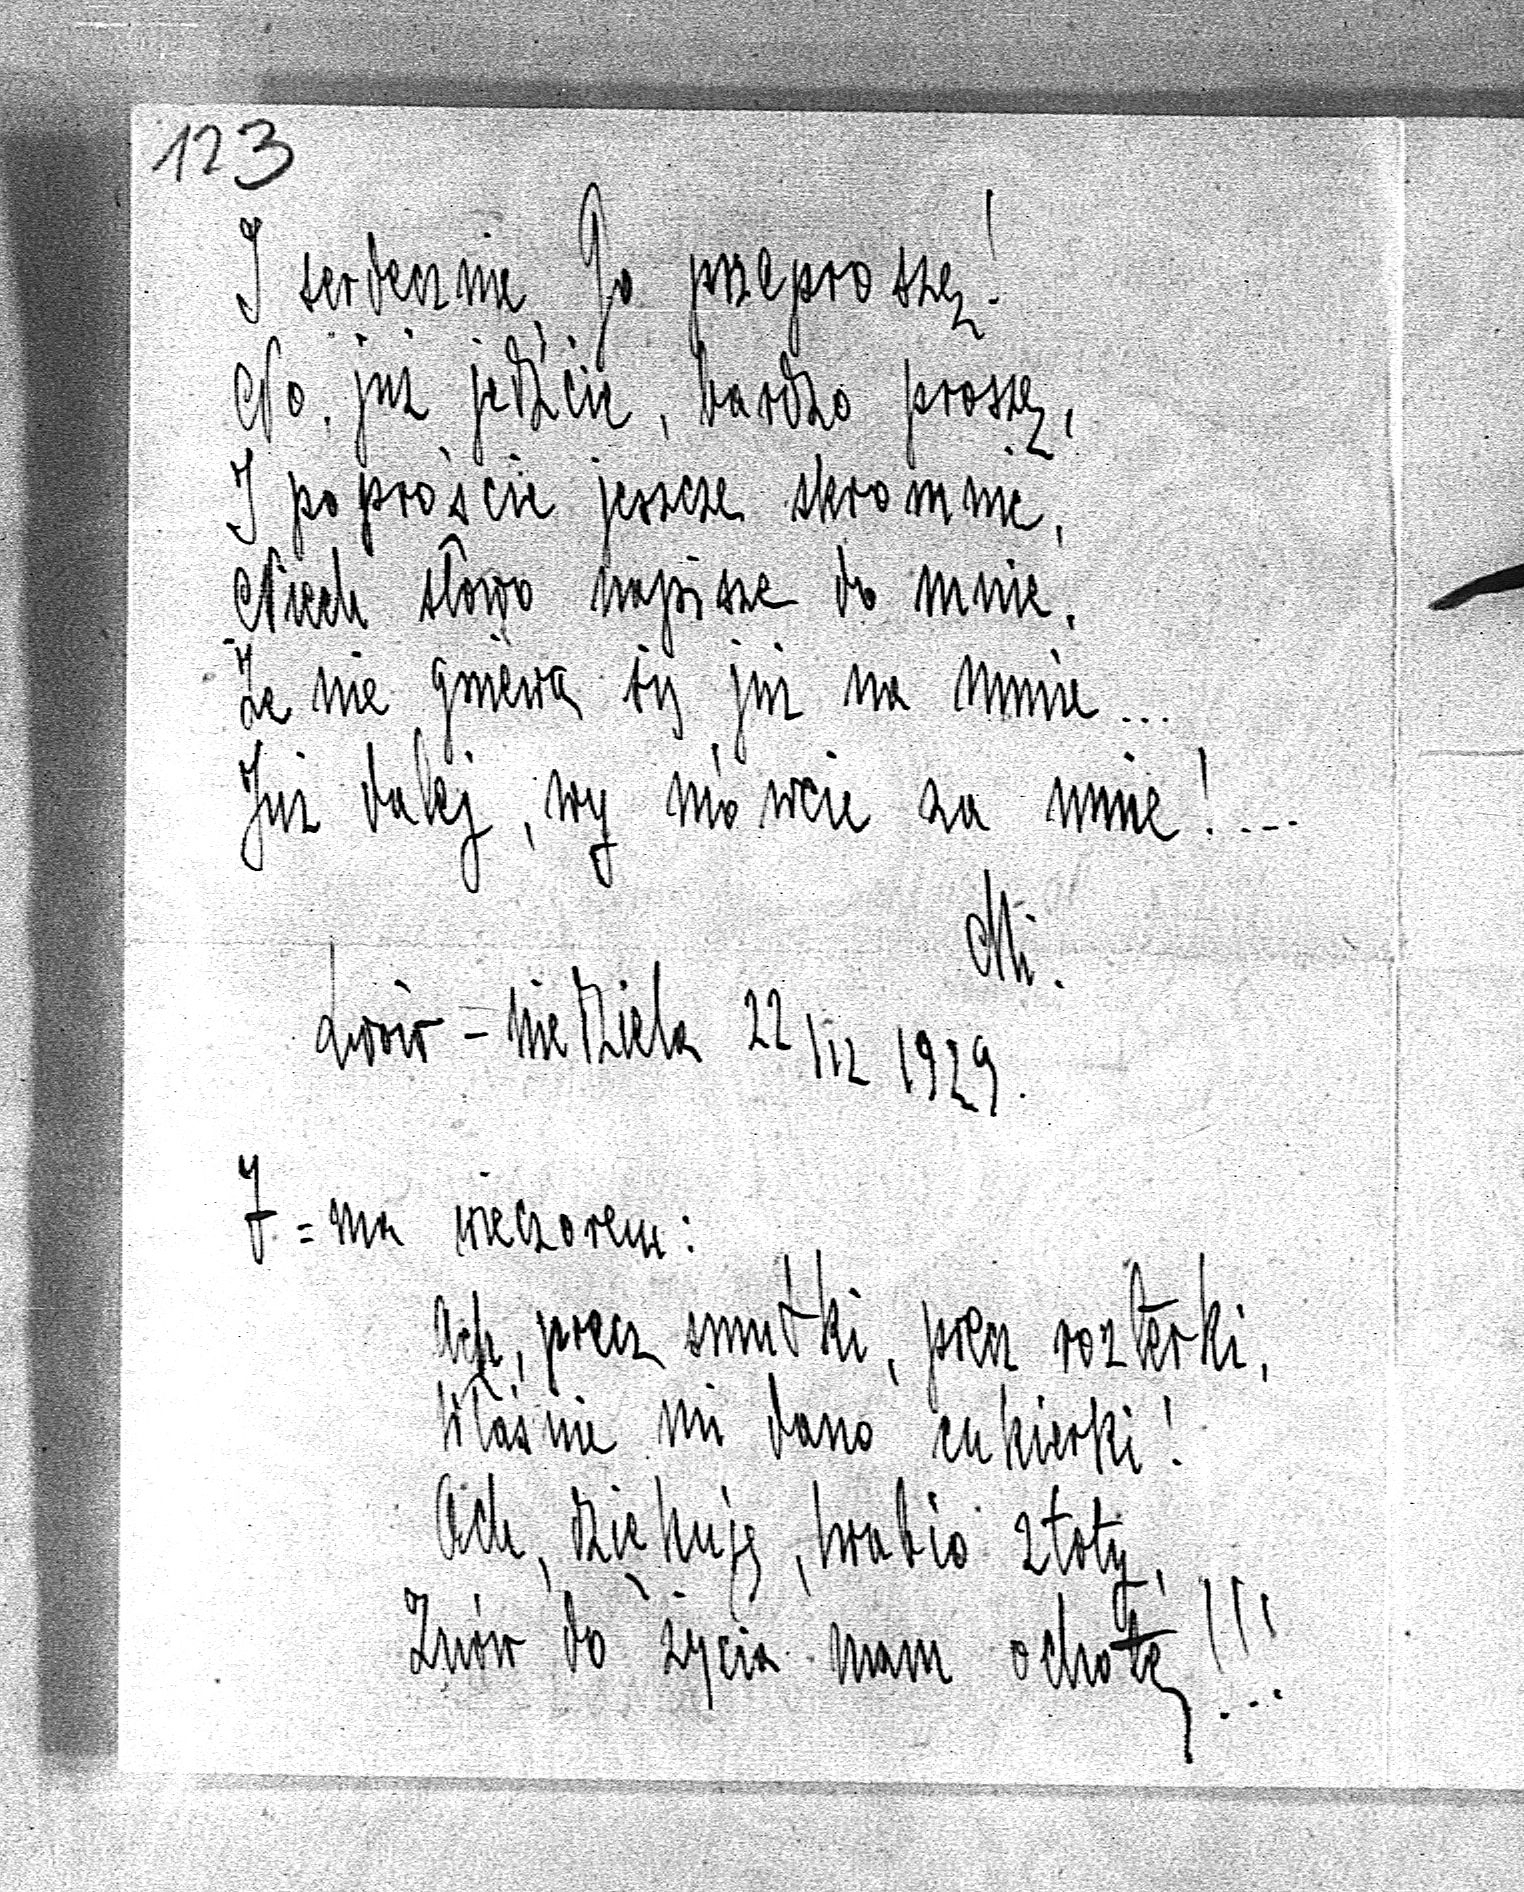 123
I serdecznie Go przeproszę!
No, już jedźcie, bardzo proszę,
I poproście jeszcze skromnie,
Niech słowo napisze do mnie,
Że nie gniewa się już na mnie...
Już dalej, wy mówcie za mnie!....
Mi.
Lwów - niedziela 22/12 1929.
7 = ma wieczorem:
Ach, precz smutki, precz rozterki,
Właśnie mi dano cukierki!
Ach, dziękuję, hrabio złoty,
Znów do życia mam ochotę!!!